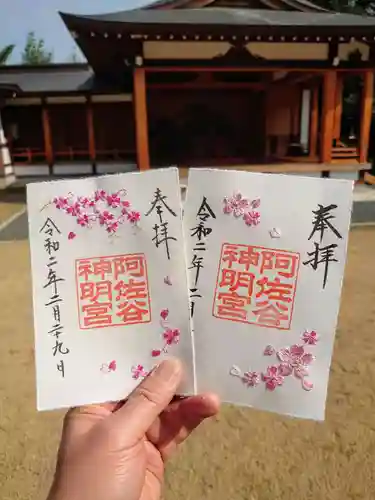 奉拝
阿佐谷
神明宮
令和二年二月二十九日
奉拝
阿佐谷
神明宮
令和二年二